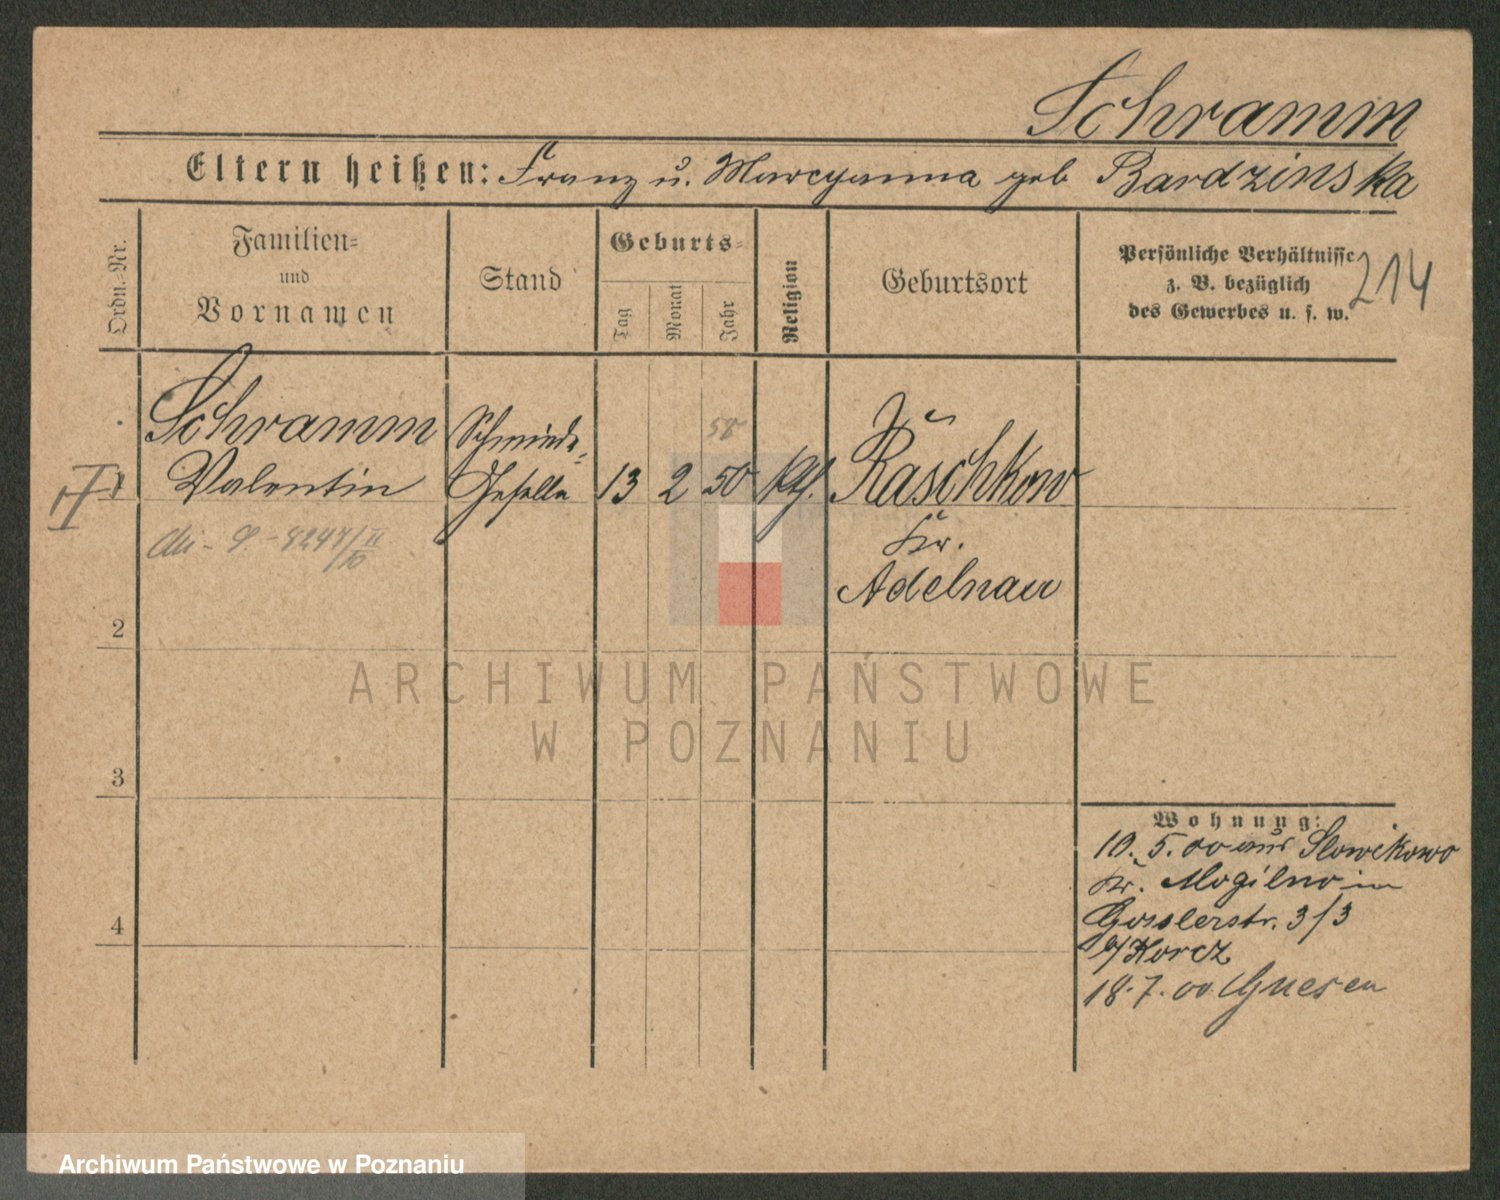 Schramm
Eltern heißen: Franz u. Marcyanna geb Bardzinska
Ordn.-Nr.
Familien-
und
Vornamen
Stand
Geburts-
Tag
Monat
Jahr
Religion
Geburtsort
Persönliche Verhältnisse
z. B. bezüglich
des Gewerbes u. s. w.
214
1
Schramm
Valentin
Schmiede-
Geselle
13
2
58
50
kth.
Raschkow
Kr.
Adelnau
II
2
3
4
Wohnung:
10. 5. 00 aus Slowikowo
Kr. Mogilno in
Gosslerstr. 3/3
b/Korcz
18. 7. 00 Gnesen
ARCHIWUM PAŃSTWOWE
W POZNANIU
Archiwum Państwowe w Poznaniu